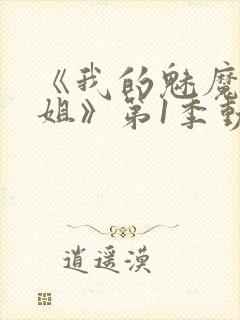 《我的魅魔
姐》第1季動
逍遥漠